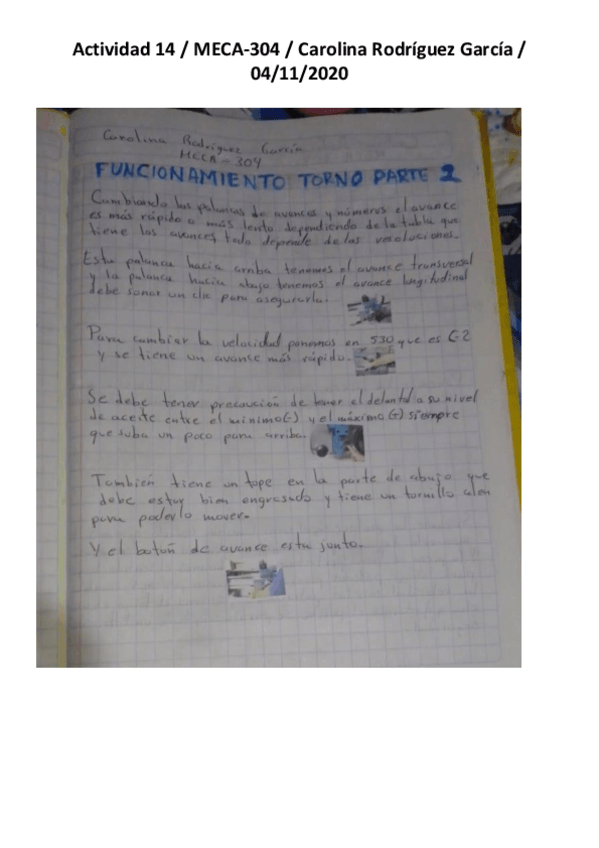 Actividad 14 / MECA-304 / Carolina Rodríguez García /
04/11/2020
Carolina Rodríguez García
MECA-304
FUNCIONAMIENTO TORNO PARTE 2
Cambiando las palancas de avances y números el avance
es más rápido o más lento dependiendo de la tabla que
tiene los avances todo depende de las revoluciones.
Esta palanca hacia arriba tenemos el avance transversal
y la palanca hacia abajo tenemos el avance longitudinal
debe sonar un clic para asegurarla.
Para cambiar la velocidad ponemos en 530 que es C-2
y se tiene un avance más rápido.
Se debe tener precaución de tener el delantal a su nivel
de aceite entre el mínimo(-) y el máximo(+) siempre
que suba un poco para arriba.
También tiene un tope en la parte de abajo que
debe estar bien engrasado y tiene un tornillo alen
para poderlo mover.
Y el botón de avance esta junto.